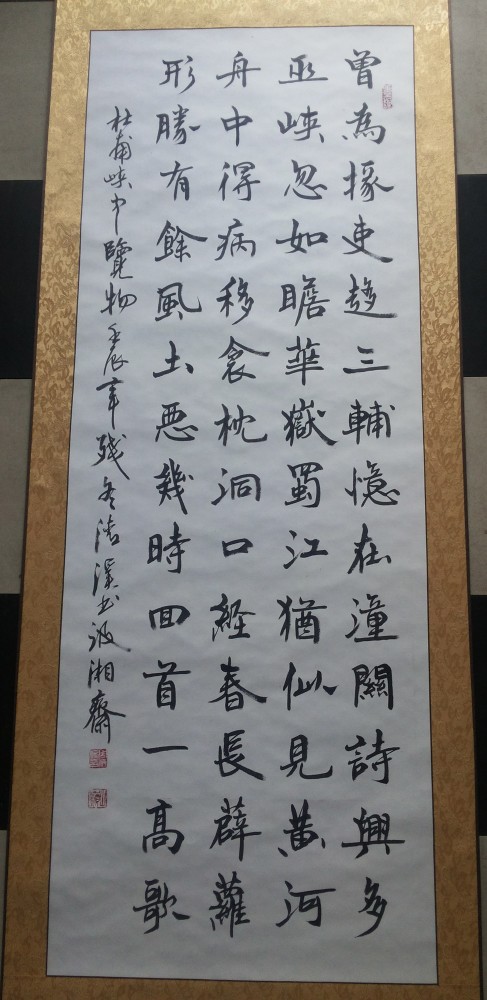 曾為掾吏趨三輔憶在潼關詩興多
巫峽忽如瞻華嶽蜀江猶似見黃河
舟中得病移衾枕洞口經春長薜蘿
形勝有餘風土惡幾時回首一高歌
杜甫峽中覽物壬辰年殘冬清溪书汲湘齋